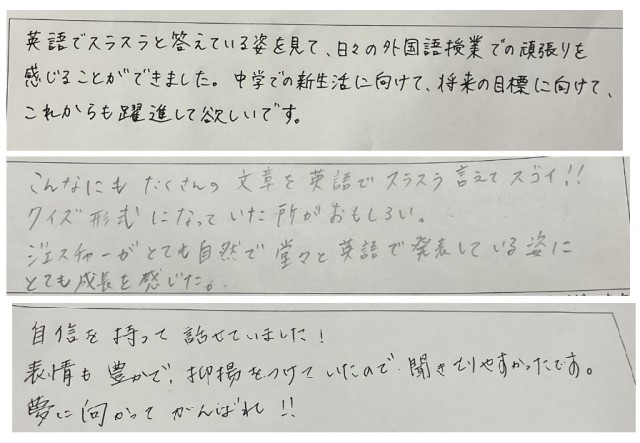 英語でスラスラと答えている姿を見て、日々の外国語授業での頑張りを
感じることができました。中学での新生活に向けて、将来の目標に向けて、
これからも躍進して欲しいです。
こんなにもたくさんの文章を英語でスラスラ言えてスゴイ!!
クイズ形式になっていた所がおもしろい。
ジェスチャーがとても自然で堂々と英語で発表している姿に
とても成長を感じた。
自信を持って話せていました!
表情も豊かで、抑揚をつけていたので聞きとりやすかったです。
夢に向かってがんばれ!!